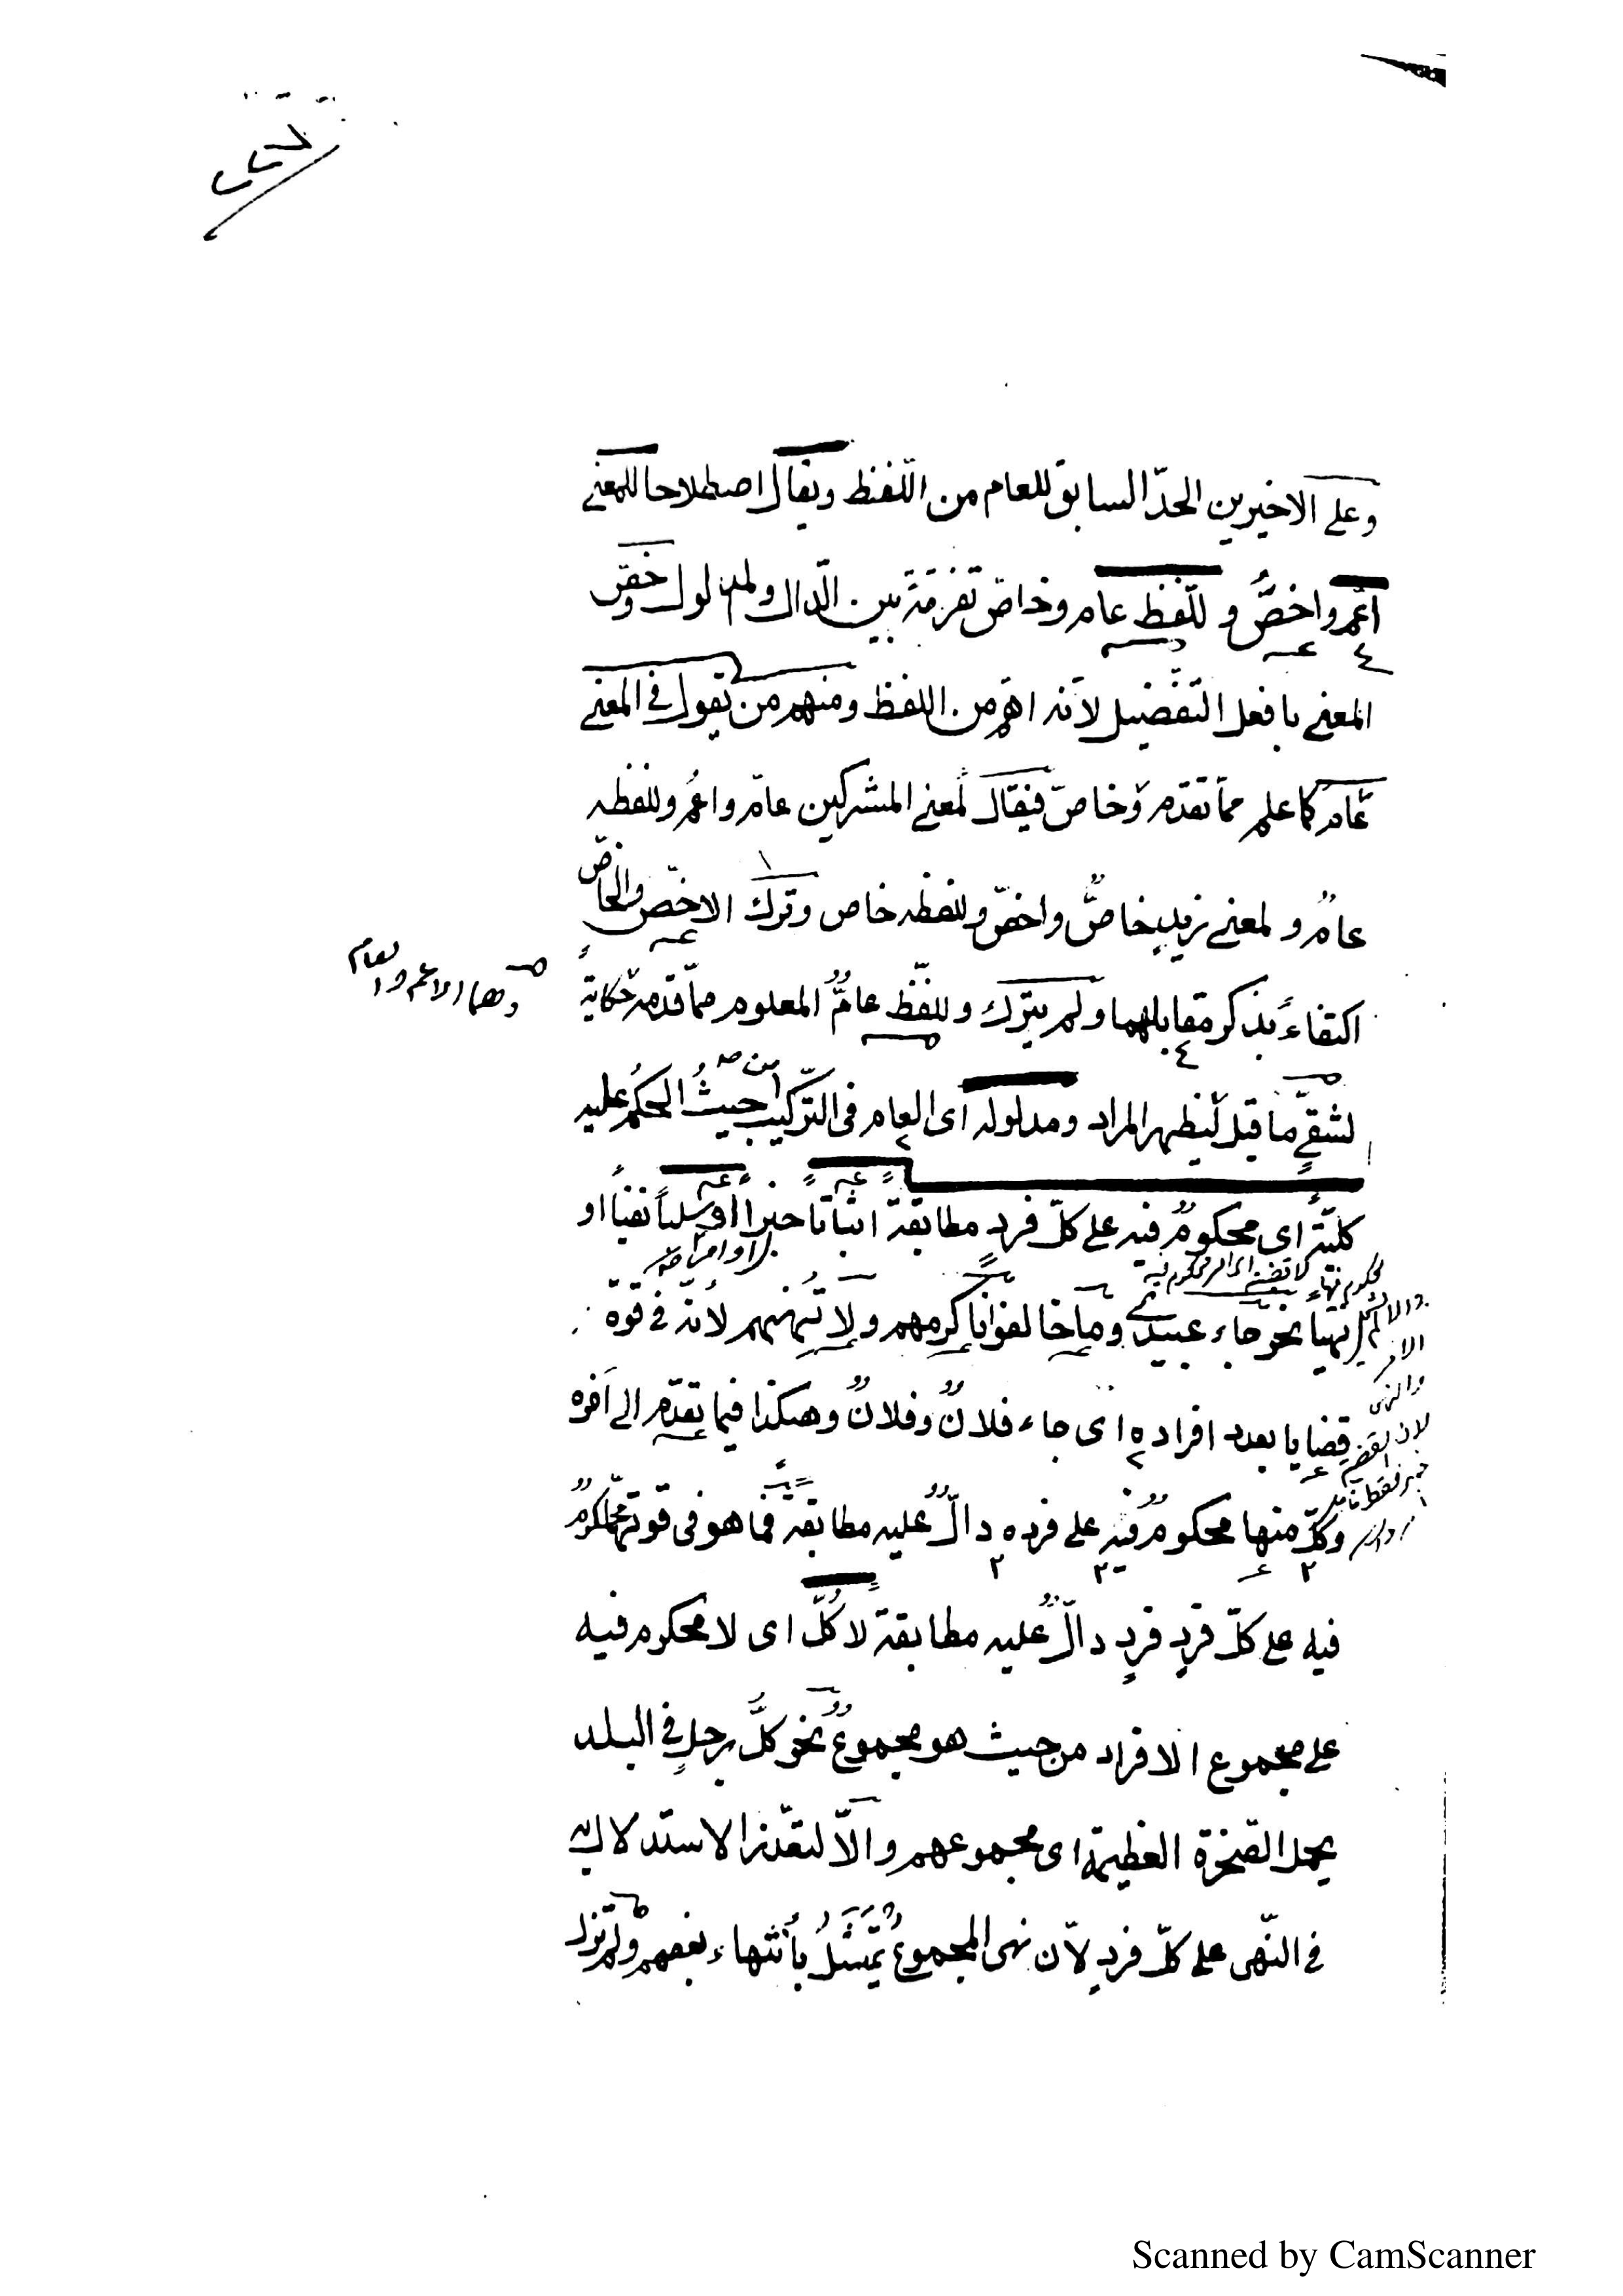 وعلى الاخيرين الحدّ السابق للعام من اللّفظ ويقال اصطلاحا للمعنى
اعمّ واخصُّ و للّفظ عام وخاصّ تفرقةً بين الدّال والمدلول وخصّ
المعنى بافعل التفضيل لانّه اهمّ من اللفظ ومنهم من يقول فى المعنى
عامّ كما علم ممّا تقدّم وخاصّ فيقال لمعنى المشركين عامّ واعمّ وللفظه
عامٌ ولمعنى زيدٍ خاصٌّ واخصّ وللفظه خاص وترك الاخصّ والخاصّ
اكتفاءً بذكر مقابلهما ولم يترك وللفظ عامٌّ المعلوم ممّا قدمه حكايةً
وهما الاعم والعام
لشقّى ما قيل ليظهر المراد ومدلوله اى العام فى التّركيب من حيثُ الحكمُ عليه
كليّةٌ اى محكومٌ فيه على كلّ فردٍ مطابقةً اثباتاً خبراً او سلباً نفياً او
او امراً
نهياً نحو جاء عبيدى وما خالفوا فاكرمهم ولا تُهِنهم لانّه فى قوّة
قضايا بعدد افراده اى جاء فلانٌ وفلانٌ وهكذا فيما تقدّم الى آخره
وكلّ منها محكومٌ فيه على فرده دالٌّ عليه مطابقةً فما هو فى قوتها محكومٌ
فيه على كلّ فردٍ فردٍ دالٌّ عليه مطابقةً لا كُلٌّ اى لا محكوم فيه
على مجموع الافراد من حيث هو مجموعٌ نحو كلُّ رجلٍ فى البلد
يحمل الصّخرة العظيمة اى مجموعهم والّا لتعذّر الاستدلال به
فى النّهى على كلّ فردٍ لانّ نهى المجموع يُمتَثَلُ بانتهاء بعضهم ولم تزل
Scanned by CamScanner